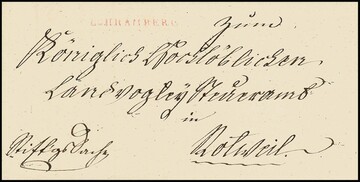 SCHRAMBERG
Zum
Königlich Hochlöblichen
Landvogtey Steueramt
in
Rotweil.
Stiftgs Sache